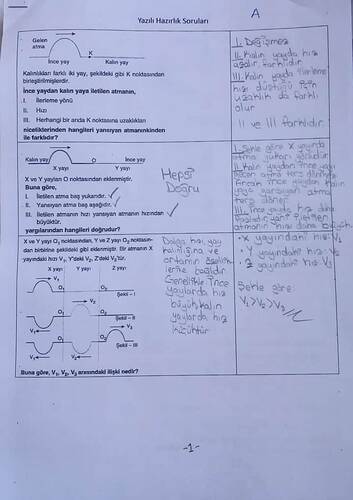 Yazılı Hazırlık Soruları
A
Gelen
atma
K
İnce yay
Kalın yay
Kalınlıkları farklı iki yay, şekildeki gibi K noktasından
birleştirilmişlerdir.
İnce yaydan kalın yaya iletilen atmanın,
I. İlerleme yönü
II. Hızı
III. Herhangi bir anda K noktasına uzaklıkları
niceliklerinden hangileri yansıyan atmanınkinden
ile farklıdır?
I. Değişmez
II. Kalın yayda hız
azalır, farklıdır.
III. Kalın yayda ilerleme
hızı düştüğü için
uzaklık da farklı
olur
II ve III farklıdır.
Kalın yay
O
İnce yay
X yayı
Y yayı
X ve Y yayları O noktasından eklenmiştir.
Buna göre,
I. İletilen atma baş yukarıdır.
II. Yansıyan atma baş aşağıdır.
III. İletilen atmanın hızı yansıyan atmanın hızından
büyüktür.
yargılarından hangileri doğrudur?
Hepsi
Doğru
I. Şekle göre X yayında
atma yukarı yönlüdür
III. İnce yayda hız daha
atmanın hızı daha büyük
X ve Y yayı O₁ noktasından, Y ve Z yayı O₂ noktasın-
dan birbirine şekildeki gibi eklenmiştir. Bir atmanın X
yayındaki hızı V₁, Y'deki V₂, Z'deki V₃'tür.
X yayı Y yayı Z yayı
V₁
O₁ O₂
Şekil – I
V₂
O₁ O₂
V₁
Şekil – II
V₃
O₁ O₂
V₁ V₂
Şekil – III
Buna göre, V₁, V₂, V₃ arasındaki ilişki nedir?
Dalga hızı, yay
kalınlığına ve
ortamın özellik-
lerine bağlıdır.
Genellikle ince
yaylarda hız
büyük, kalın
yaylarda hız
küçüktür
• X yayındaki hız: V₁
• Y yayındaki hız: V₂
• Z yayındaki hız: V₃
Şekle göre
V₁>V₂>V₃
-1-